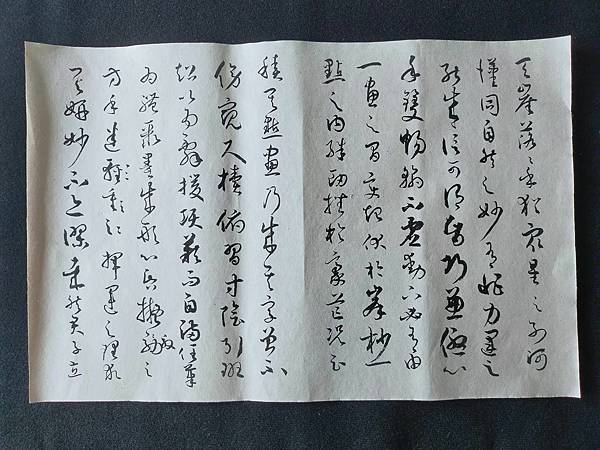 天崖落々乎猶眾星之列河
漢同自然之妙有非力運之
能成信可謂智巧兼優心
手雙暢翰不虛動下必有由
一畫之間變起伏於峯杪一
點之內殊衄挫於豪芒況云
積其點畫乃成其字曾不
傍窺尺櫝俯習寸陰引班
超以為辭援項籍而自滿任筆
為體聚墨成形心昏擬效之
方手迷揮運之理求
其妍妙不亦謬哉然君子立